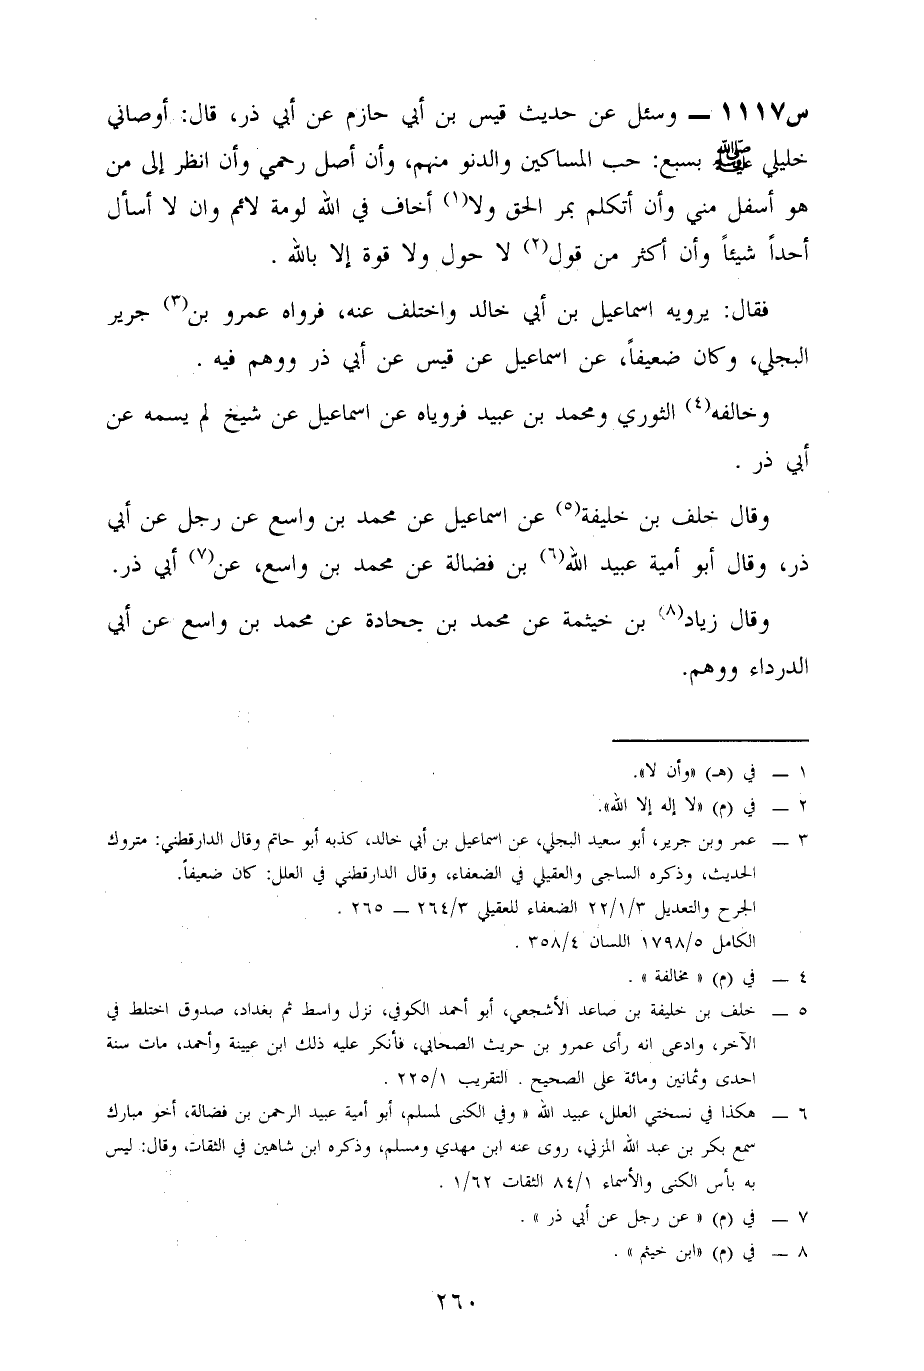 س١١١٧ ـ وسئل عن حديث قيس بن أبي حازم عن أبي ذر، قال: أوصاني
خليلي ﷺ بسبع: حب المساكين والدنو منهم، وأن أصل رحمي وأن انظر إلى من
هو أسفل مني وأن أتكلم بمر الحق ولا(١) أخاف في الله لومة لائم وان لا أسأل
أحداً شيئاً وأن أكثر من قول(٢) لا حول ولا قوة إلا بالله .
فقال: يرويه اسماعيل بن أبي خالد واختلف عنه، فرواه عمرو بن(٣) جرير
البجلي، وكان ضعيفاً، عن اسماعيل عن قيس عن أبي ذر ووهم فيه .
وخالفه(٤) الثوري ومحمد بن عبيد فروياه عن اسماعيل عن شيخ لم يسمه عن
أبي ذر .
وقال خلف بن خليفة(٥) عن اسماعيل عن محمد بن واسع عن رجل عن أبي
ذر، وقال أبو أمية عبيد الله(٦) بن فضالة عن محمد بن واسع، عن(٧) أبي ذر.
وقال زياد(٨) بن خيثمة عن محمد بن جحادة عن محمد بن واسع عن أبي
الدرداء ووهم.
١ ـ في (هـ) «وأن لا».
٢ ـ في (م) «لا إله إلا الله».
٣ ـ عمر وبن جرير، أبو سعيد البجلي، عن اسماعيل بن أبي خالد، كذبه أبو حاتم وقال الدارقطني: متروك
الحديث، وذكره الساجى والعقيلي في الضعفاء، وقال الدارقطني في العلل: كان ضعيفاً.
الجرح والتعديل ٢٢/١/٣ الضعفاء للعقيلي ٢٦٤/٣ ـ ٢٦٥ .
الكامل ١٧٩٨/٥ اللسان ٣٥٨/٤ .
٤ ـ في (م) « مخالفة » .
٥ ـ خلف بن خليفة بن صاعد الأشجعي، أبو أحمد الكوفي، نزل واسط ثم بغداد، صدوق اختلط في
الآخر، وادعى انه رأى عمرو بن حريث الصحابي، فأنكر عليه ذلك ابن عيينة وأحمد، مات سنة
احدى وثمانين ومائة على الصحيح . التقريب ٢٢٥/١ .
٦ ـ هكذا في نسختي العلل، عبيد الله « وفي الكنى لمسلم، أبو أمية عبيد الرحمن بن فضالة، أخو مبارك
سمع بكر بن عبد الله المزني، روى عنه ابن مهدي ومسلم، وذكره ابن شاهين في الثقات، وقال: ليس
به بأس الكنى والأسماء ٨٤/١ الثقات ١/٦٢ .
٧ ـ في (م) « عن رجل عن أبي ذر » .
٨ ـ في (م) «ابن خيثم » .
٢٦٠